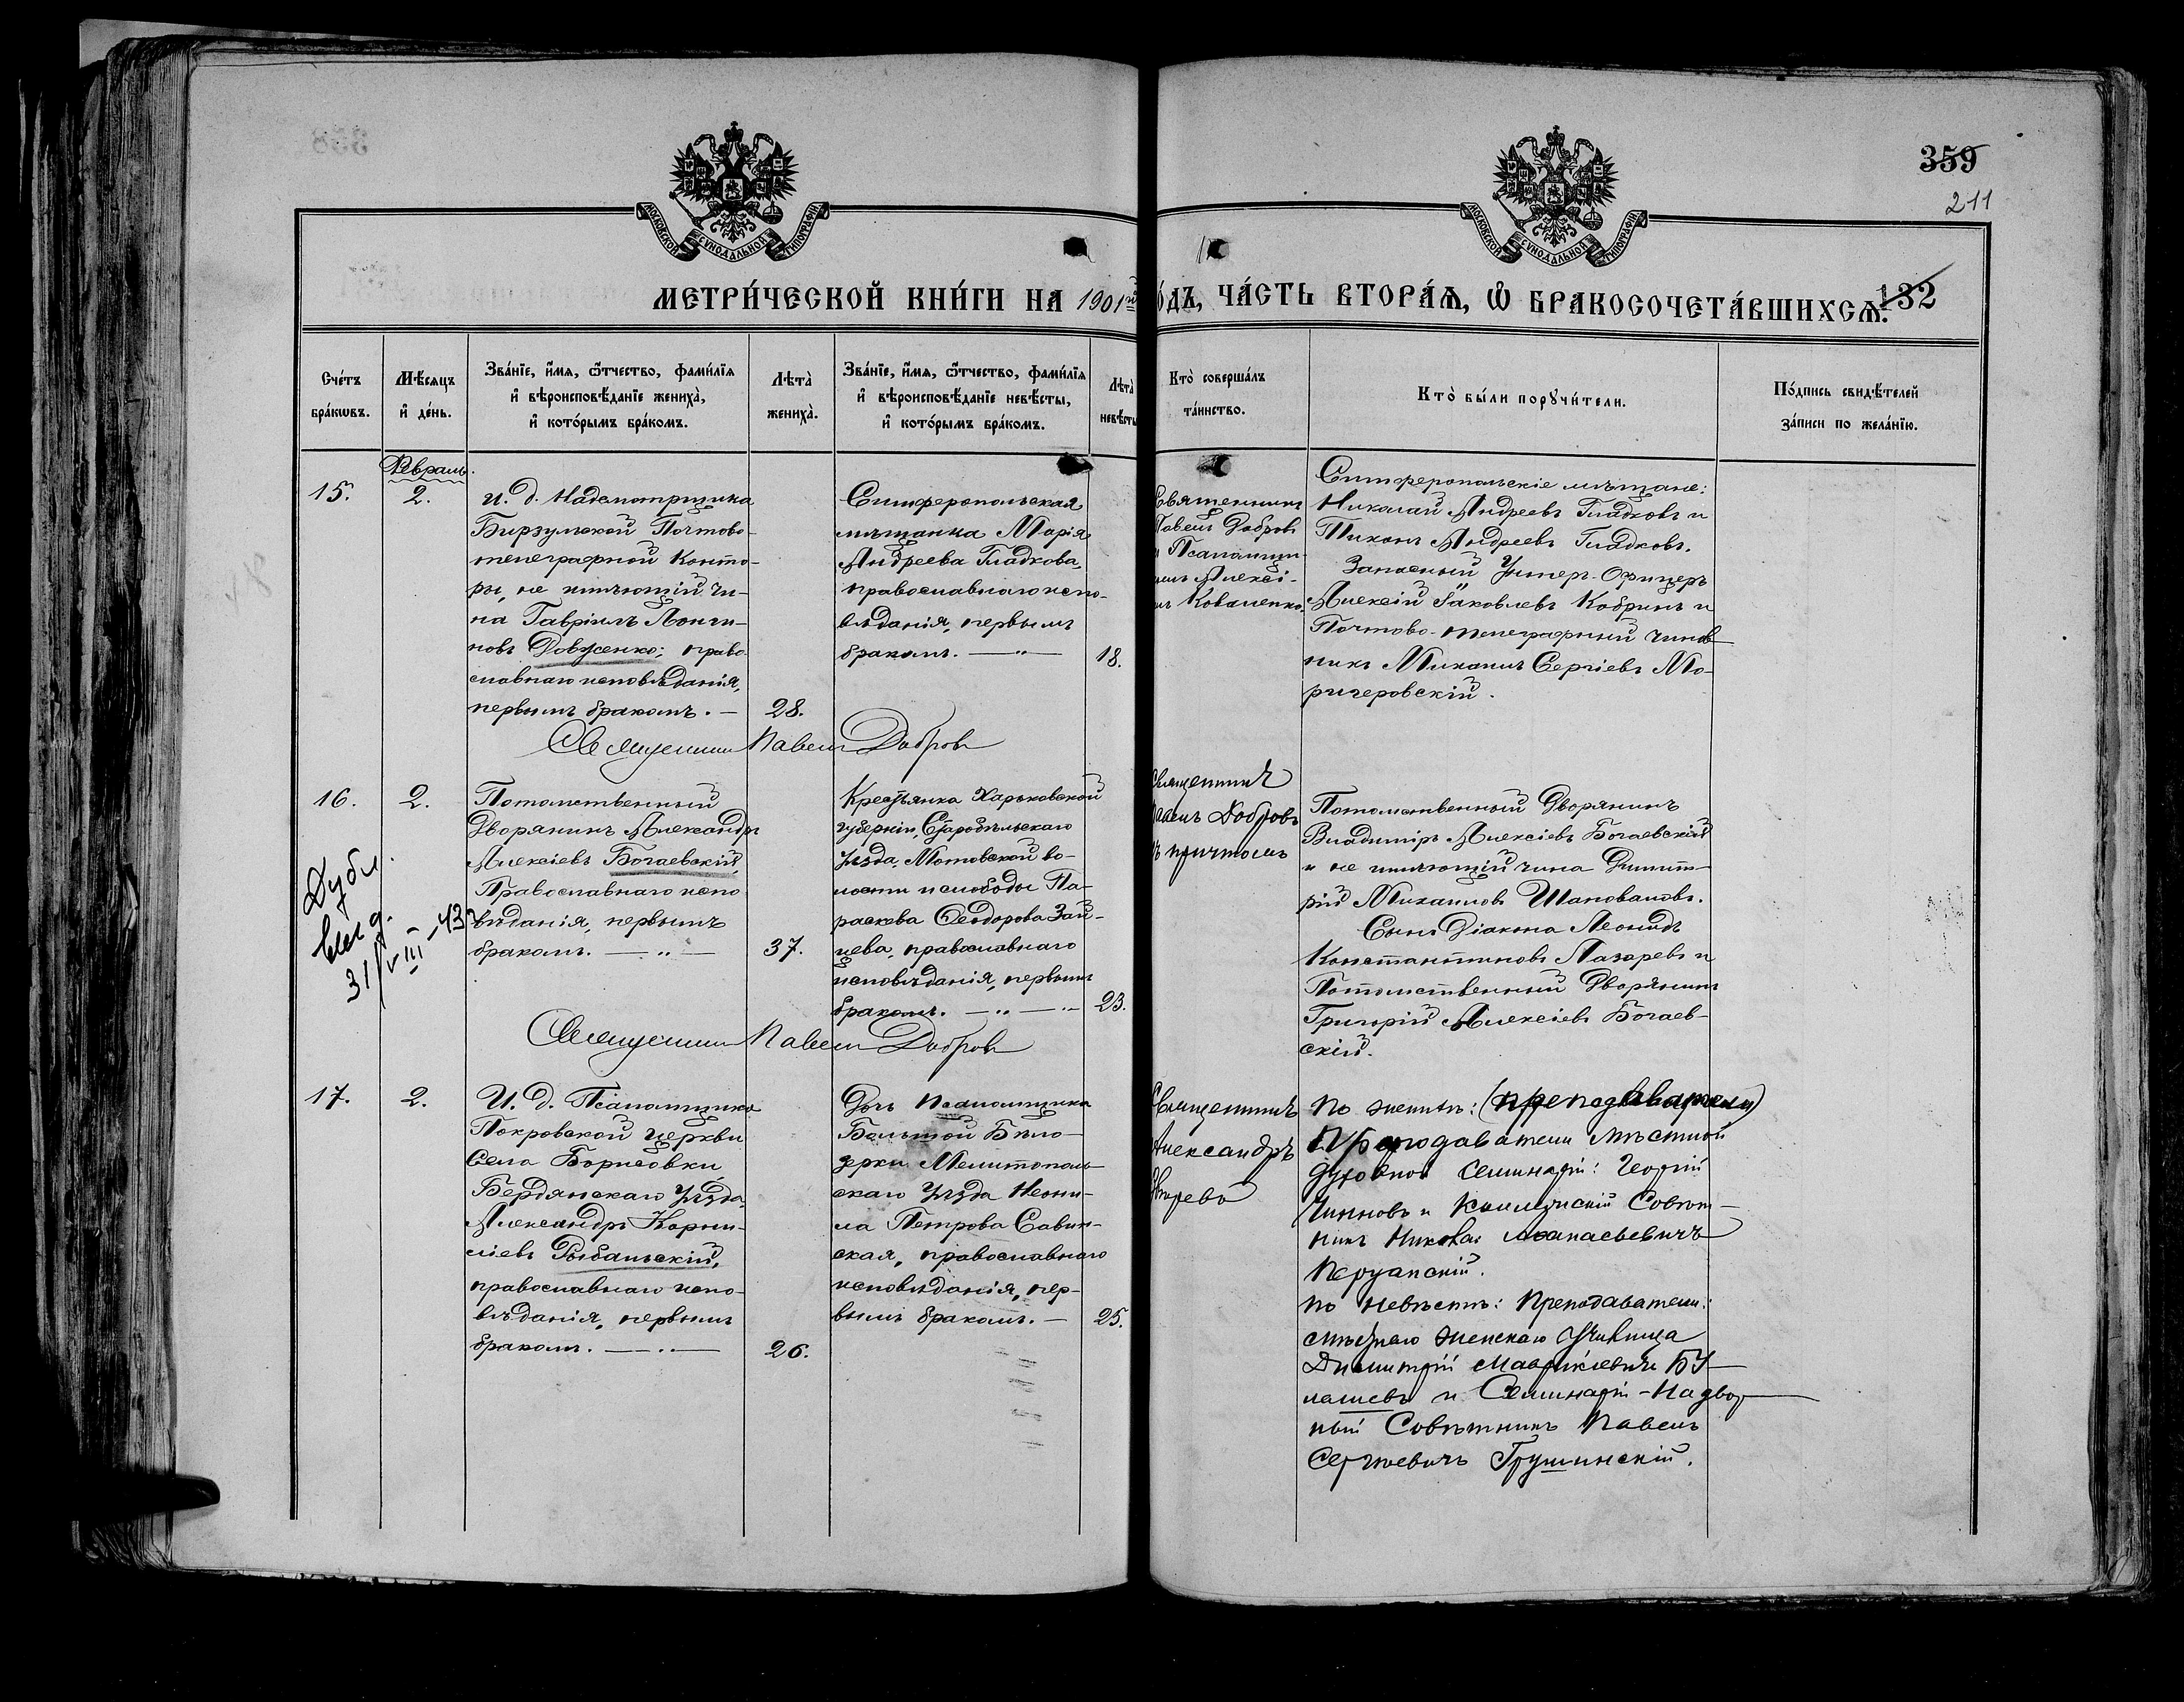 359
211
МОСКОВСКОЙ СѴНОДАЛЬНОЙ ТИПОГРАФІИ
МОСКОВСКОЙ СѴНОДАЛЬНОЙ ТИПОГРАФІИ
МЕТРИ́ЧЕСКОЙ КНИ́ГИ НА 1901й
О́ДЪ, ЧА́СТЬ ВТОРА́Ѧ, Ѽ БРАКОСОЧЕТА́ВШИХСѦ.
132
Сче́тъ бра́кѡвъ.
Мѣ́сяцъ и҆ де́нь.
Зва́нїе, и҆́мя, ѻ҆́тчество, фами́лїя
и҆ вѣроисповѣ́данїе жениха̀,
и҆ кото́рымъ бра́комъ.
Лѣта̀ жениха̀.
Зва́нїе, и҆́мя, ѻ҆́тчество, фами́лїя
и҆ вѣроисповѣ́данїе невѣ́сты,
и҆ кото́рымъ бра́комъ.
Лѣта̀ невѣ́сты
Кто̀ соверша́лъ та́инство.
Кто̀ бы́ли порꙋчи́тели.
По́дпись свидѣ́телей
за́писи по жела́нїю.
Февраль.
15.
2.
и. д. Надсмотрщика
Бирзульской Почтово-
телеграфной Конто-
ры, не имѣющій чи-
на Гавріилъ Лонги-
новъ Довженко; право
славнаго исповѣданія,
первымъ бракомъ. —
28.
Симферопольская
мѣщанка Марія
Андреева Гладкова,
православнаго испо-
вѣданія, первымъ
бракомъ. — " —
18.
Священникъ
Павелъ Добровъ
и Псаломщи-
комъ Алексі-
Коваленко.
Симферопольскіе мѣщане:
Николай Андреевъ Гладковъ и
Тихонъ Андреевъ Гладковъ.
Запасный Унтеръ-Офицеръ
Алексій Іаковлевъ Кобринъ и
Почтово-телеграфный чинов
никъ Михаилъ Сергіевъ Мо-
ричеровскій.
Священникъ Павелъ Добровъ
16.
2.
Потомственный
Дворянинъ Александръ
Алексіевъ Богаевскій,
Православнаго испо
вѣданія, первымъ
бракомъ. — " —
37.
Крестьянка Харьковской
губерніи, Старобѣльскаго
уѣзда, Мотовской во-
лости и слободы Па-
раскева Ѳеодорова Зай-
цева, православнаго
исповѣданія, первымъ
бракомъ. — " —
23.
Священникъ
Павелъ Добровъ
съ причтомъ
Потомственный Дворянинъ
Владиміръ Алексіевъ Богаевскій
и не имѣющій чина Димит-
рій Михаиловъ Шаповаловъ.
Сынъ Діакона Леонидъ
Константиновъ Лазаревъ и
Потомственный Дворянинъ
Григорій Алексіевъ Богаев-
скій.
Дубл.
выд.
31/VIII-43
Священникъ Павелъ Добровъ
17.
2.
И. д. Псаломщика
Покровской церкви
Села Борисовки
Бердянскаго уѣзда,
Александръ Корни-
ліевъ Рыбальскій,
православнаго испо-
вѣданія, первымъ
бракомъ. — " —
26.
Дочь псаломщика
Большой Бѣло-
зерки Мелитополь-
скаго уѣзда Неони-
ла Петрова Савин-
ская, православнаго
исповѣданія, пер-
вымъ бракомъ. —
25.
Священникъ
Александръ
Звѣревъ
по женихѣ: (преподаватели)
Преподаватели мѣстной
духовной семинаріи: Георгій
и Коллежскій Совѣт-
никъ Николай Аѳанасьевичъ
по невѣстѣ: преподаватели:
мѣстнаго женскаго училища
Димитрій Маврикіевичъ Бу-
и Семинаріи - Надвор
ный Совѣтникъ Павелъ
Сергіевичъ Грушинскій.